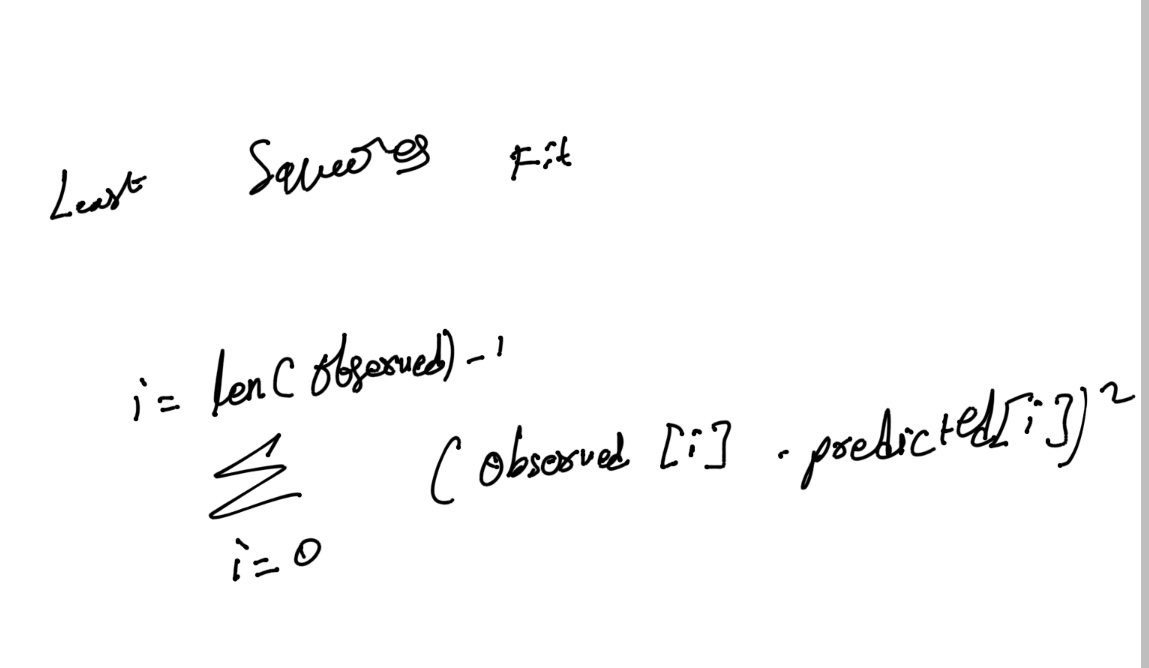 Least Squares Fit
i = len(observed) - 1
∑ (observed [i] - predicted[i])²
i = 0